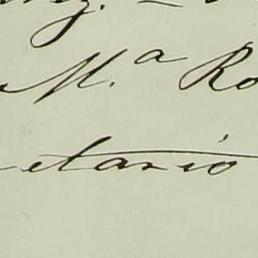 M.ª Ro
etario